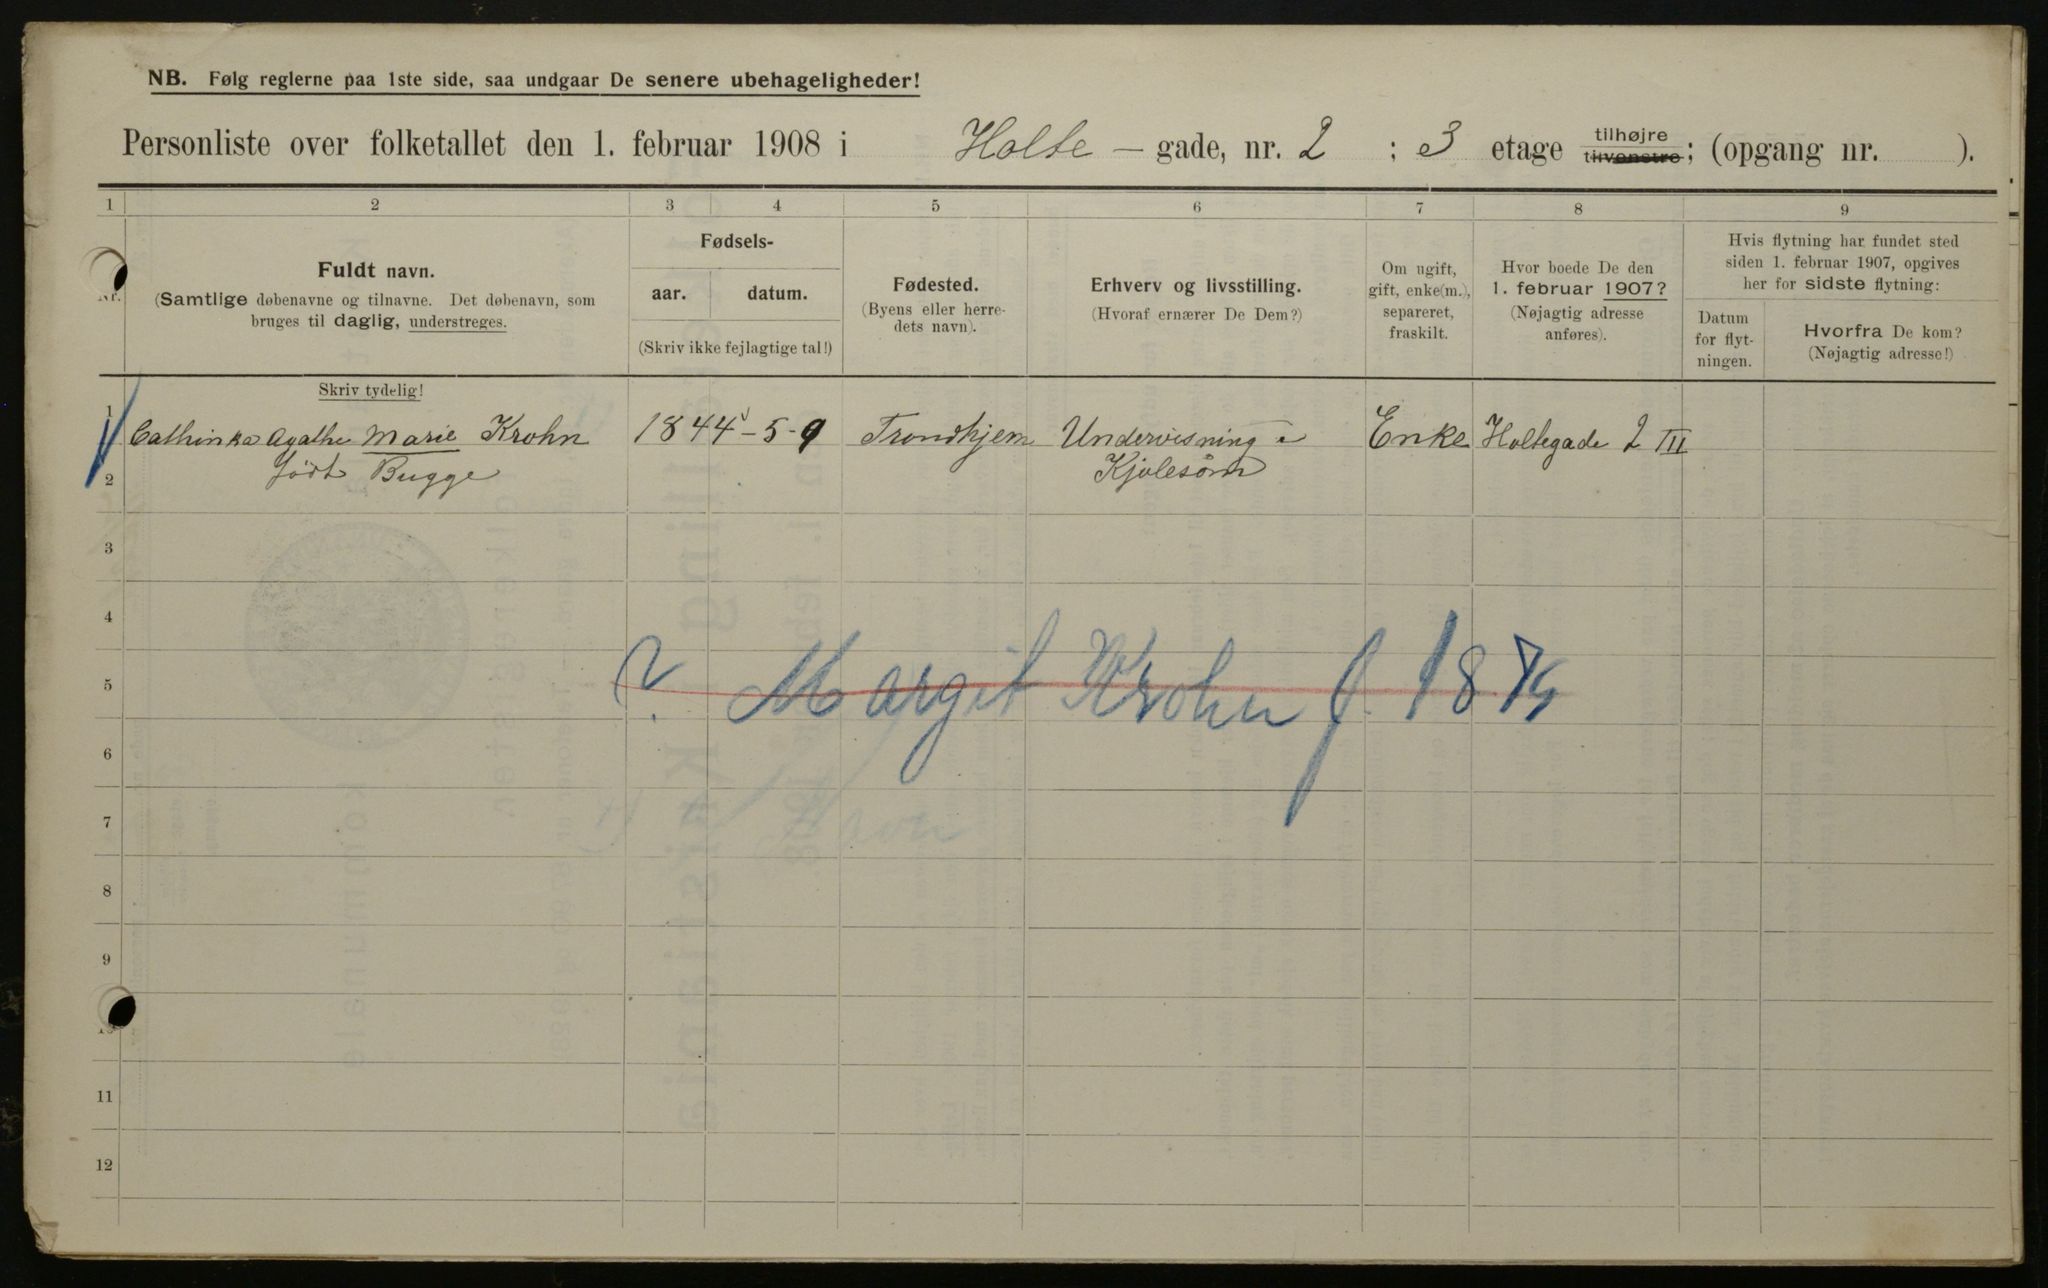 NB. Følg reglerne paa 1ste side, saa undgaar De senere ubehageligheder!
Personliste over folketallet den 1. februar 1908 i Holte — gade, nr. 2 ; 3 etage tilhøjre tilvenstre; (opgang nr. ).
1 2 3 4 5 6 7 8 9
Nr.
Fuldt navn.
(Samtlige døbenavne og tilnavne. Det døbenavn, som
bruges til daglig, understreges.
Fødsels-
aar. datum.
(Skriv ikke fejlagtige tal!)
Fødested.
(Byens eller herre-
dets navn).
Erhverv og livsstilling.
(Hvoraf ernærer De Dem?)
Om ugift,
gift, enke(m.),
separeret,
fraskilt.
Hvor boede De den
1. februar 1907?
(Nøjagtig adresse
anføres).
Hvis flytning har fundet sted
siden 1. februar 1907, opgives
her for sidste flytning:
Datum
for flyt-
ningen.
Hvorfra De kom?
(Nøjagtig adresse!)
Skriv tydelig!
1 Cathinka Agathe Marie Krohn 1844 – 5 - 9 Trondhjem Undervisning i Enke Holtegade 2 III
2 født Bugge Kjolesøm
3
4
5 ? Margit Krohn f. 1879
6
7
8
9
10
11
12